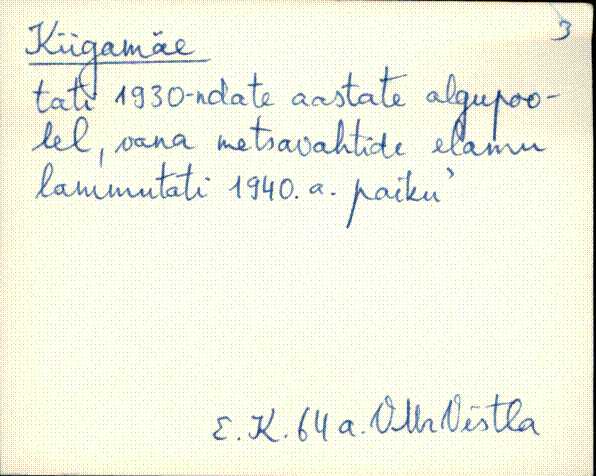 3
Kiigamäe
tati 1930-ndate aastate algupoo-
lel, vana metsavahtide elamu
lammutati 1940. a. paiku’
E. K. 64 a. VMr Vistla